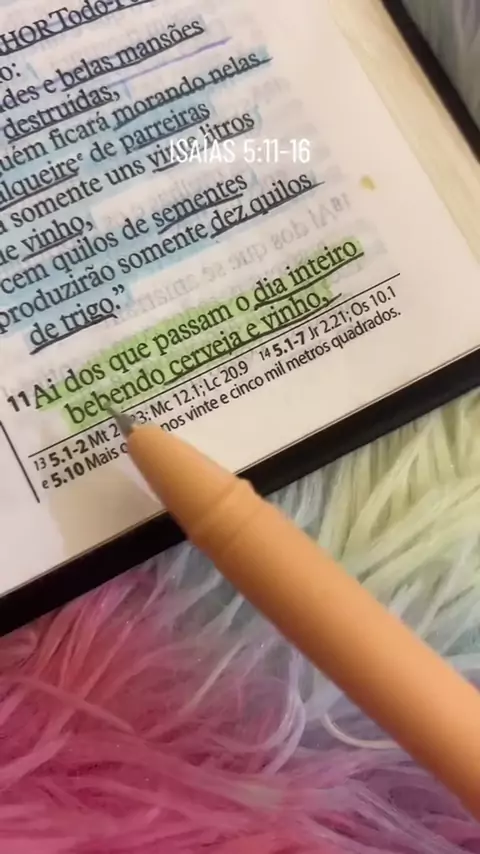 HOR Todo-P
o:
des e belas mansões
destruídas,
uém ficará morando nelas
alqueire e de parreiras
somente uns vinte litros
de vinho,
cem quilos de sementes
produzirão somente dez quilos
de trigo.”
ISAÍAS 5:11-16
11 Ai dos que passam o dia inteiro
bebendo cerveja e vinho,
13 5.1-2 Mt 23; Mc 12.1; Lc 20.9 14 5.1-7 Jr 2.21; Os 10.1
e 5.10 Mais nos vinte e cinco mil metros quadrados.